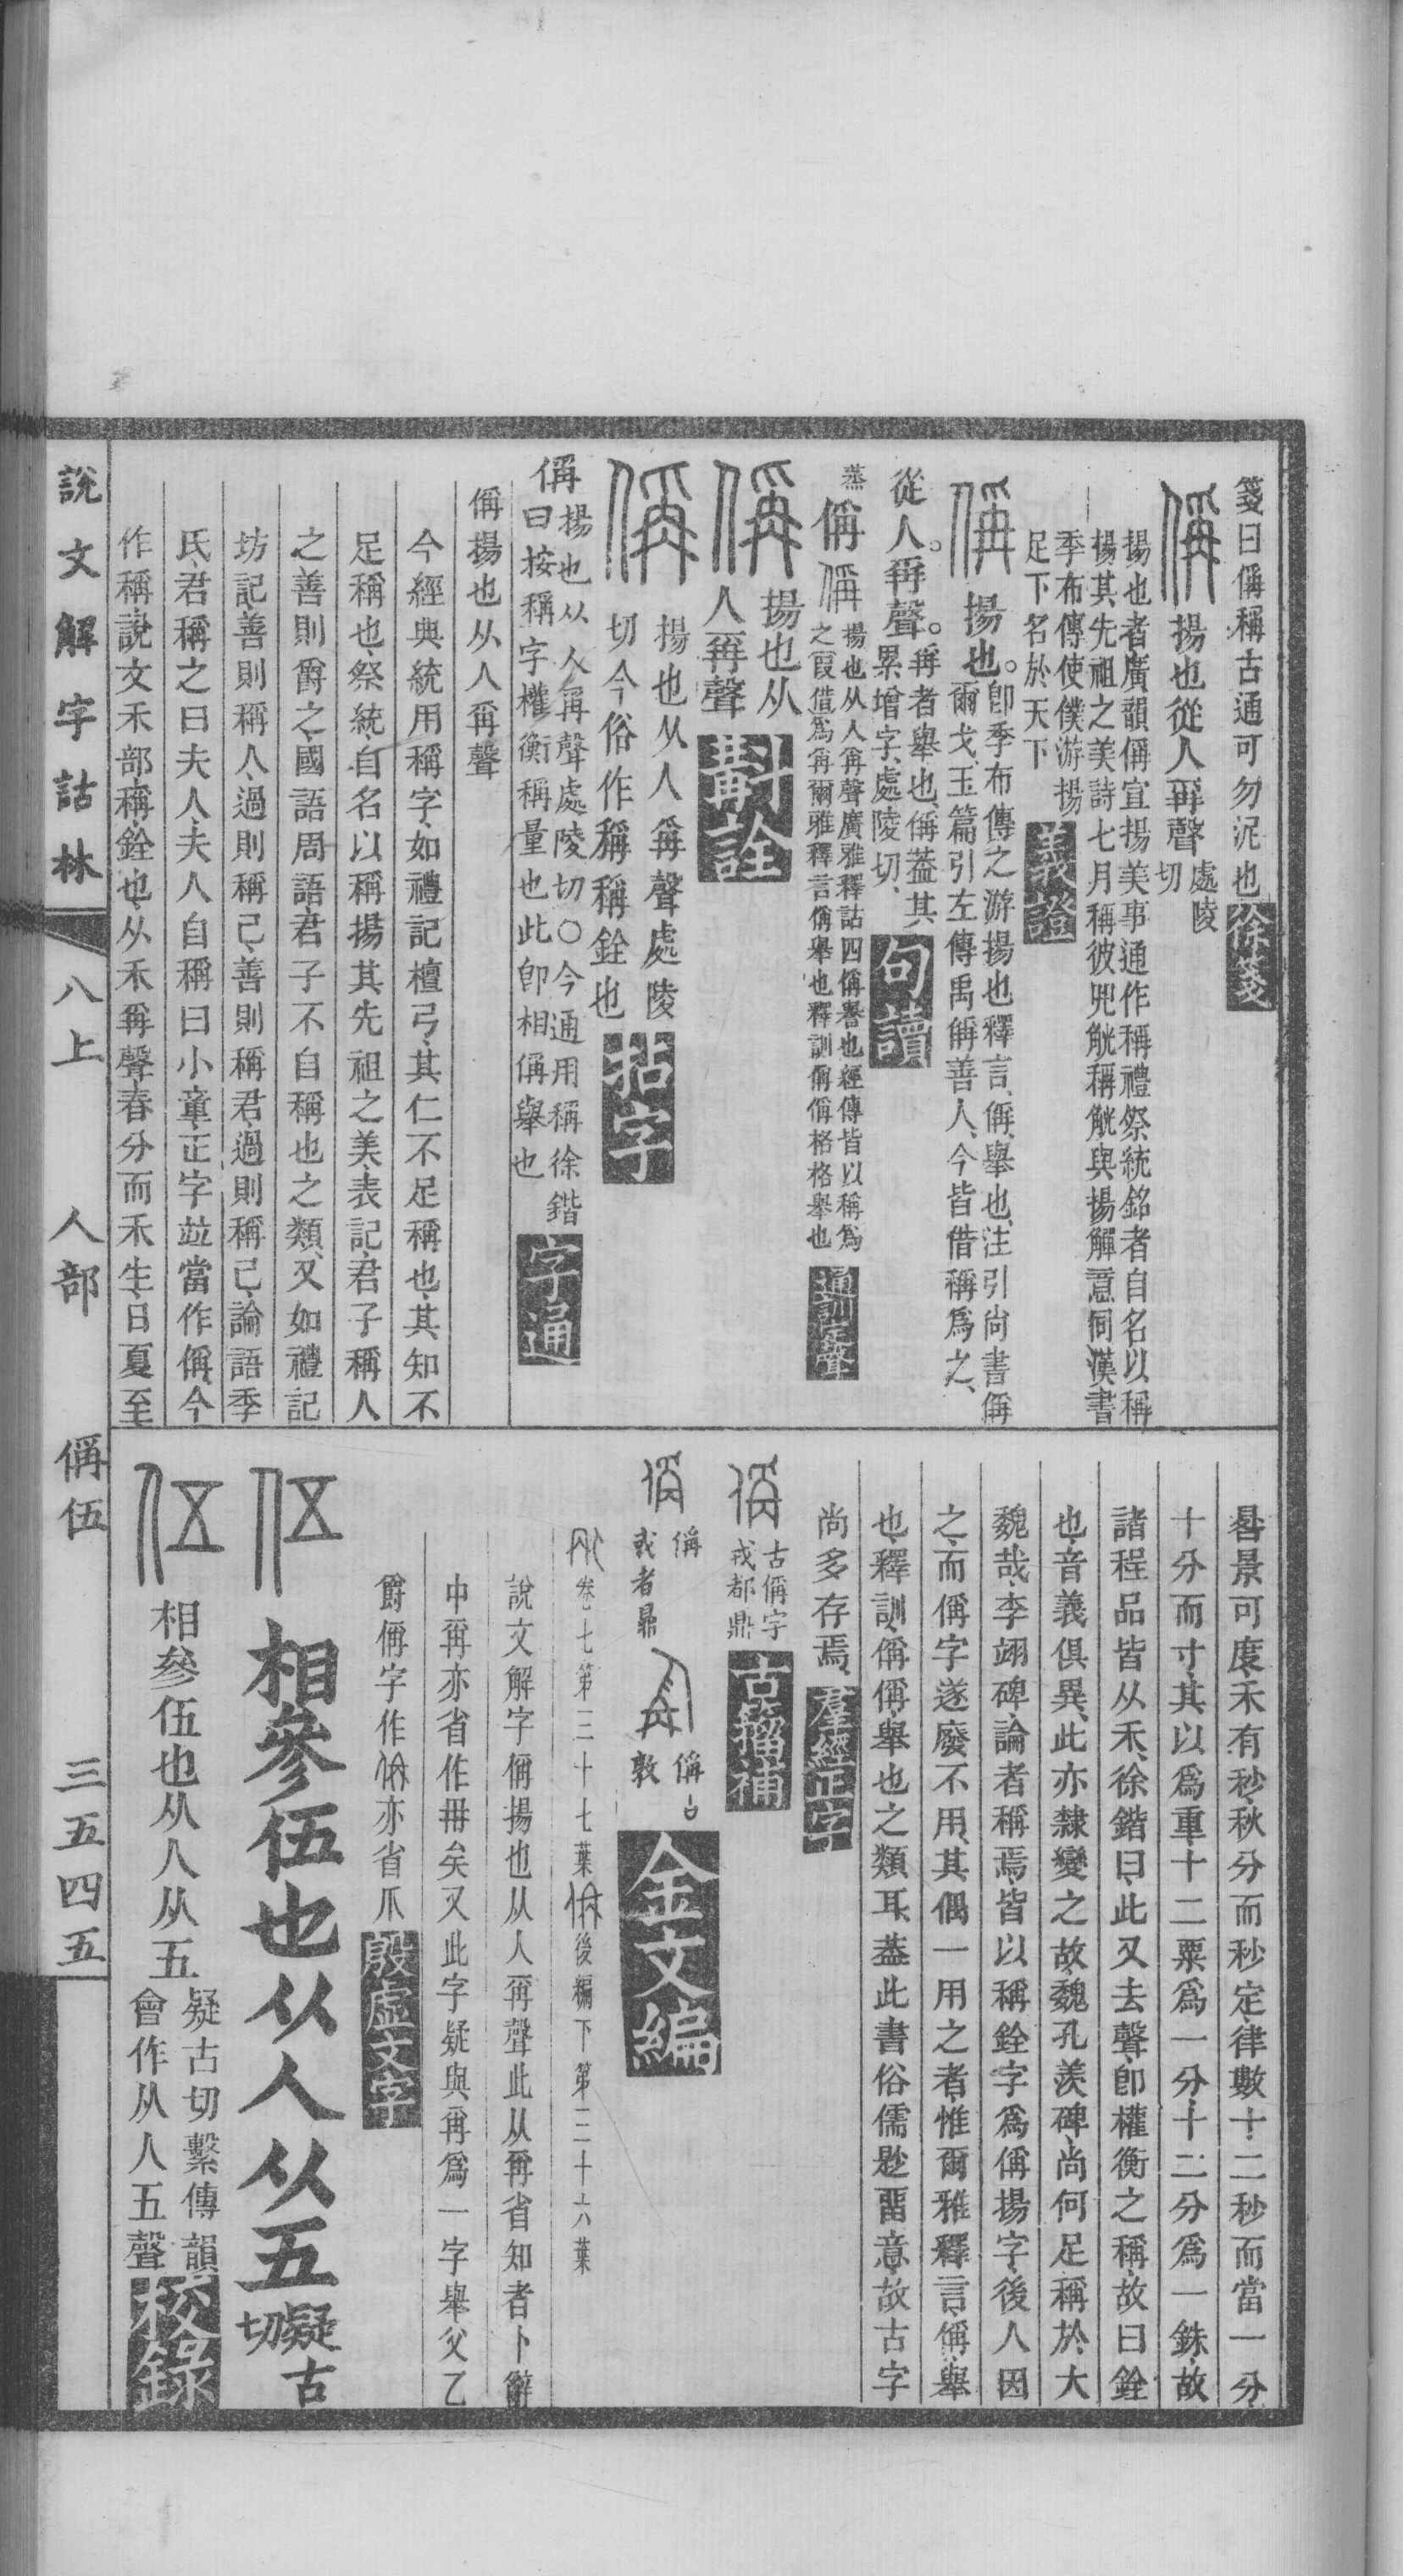 箋曰偁稱古通可勿泥也徐箋
揚也從人爯聲處陵切
揚也者廣韻偁宣揚美事通作稱禮祭統銘者自名以稱
揚其先祖之美詩七月稱彼兕觥稱觥與揚觶意同漢書
季布傳使僕游揚
足下名於天下義證
揚也。卽季布傳之游揚也釋言、偁、舉也、注引尙書偁
爾戈、玉篇引左傳禹偁善人、今皆借稱爲之、
從人。爯聲。爯者舉也、偁葢其
累增字、處陵切、句讀
蒸偁揚也从人爯聲廣雅釋詁四偁譽也經傳皆以稱爲
之叚借爲爯爾雅釋言偁舉也釋訓偁偁格格舉也通訓定聲
揚也从
人爯聲斠詮
揚也从人爯聲處陵
切今俗作稱稱銓也拈字
偁揚也从人爯聲處陵切〇今通用稱徐鍇
曰按稱字權衡稱量也此卽相偁舉也字通
偁揚也从人爯聲
今經典統用稱字、如禮記檀弓、其仁不足稱也、其知不
足稱也、祭統、自名以稱揚其先祖之美、表記、君子稱人
之善則爵之、國語周語、君子不自稱也之類、又如禮記
坊記、善則稱人、過則稱己、善則稱君、過則稱己、論語季
氏、君稱之曰夫人、夫人自稱曰小童、正字竝當作偁、今
作稱、說文禾部、稱、銓也、从禾爯聲、春分而禾生、日夏至
晷景可度、禾有秒、秋分而秒定、律數十二秒而當一分、
十分而寸、其以爲重、十二粟爲一分、十二分爲一銖、故
諸程品皆从禾、徐鍇曰、此又去聲、卽權衡之稱、故曰銓
也、音義俱異、此亦隸變之故、魏孔羨碑、尙何足稱於大
魏哉、李翊碑、論者稱焉、皆以稱銓字爲偁揚字、後人因
之、而偁字遂廢不用、其偶一用之者、惟爾雅釋言、偁、舉
也、釋訓、偁偁、舉也之類耳、葢此書俗儒尟畱意、故古字
尙多存焉、羣經正字
古偁字
戎都鼎古籀補
偁
或者鼎
偁
敦金文編
卷七第三十七葉後編下第三十六葉
說文解字偁揚也从人爯聲此从爯省知者卜辭
中爯亦省作冄矣又此字疑與爯爲一字舉父乙
爵偁字作亦省爪殷虛文字
相參伍也从人从五疑古切
相參伍也从人从五疑古切繫傳韻
會作从人五聲校錄
說文解字詁林 八上 人部 偁伍 三五四五